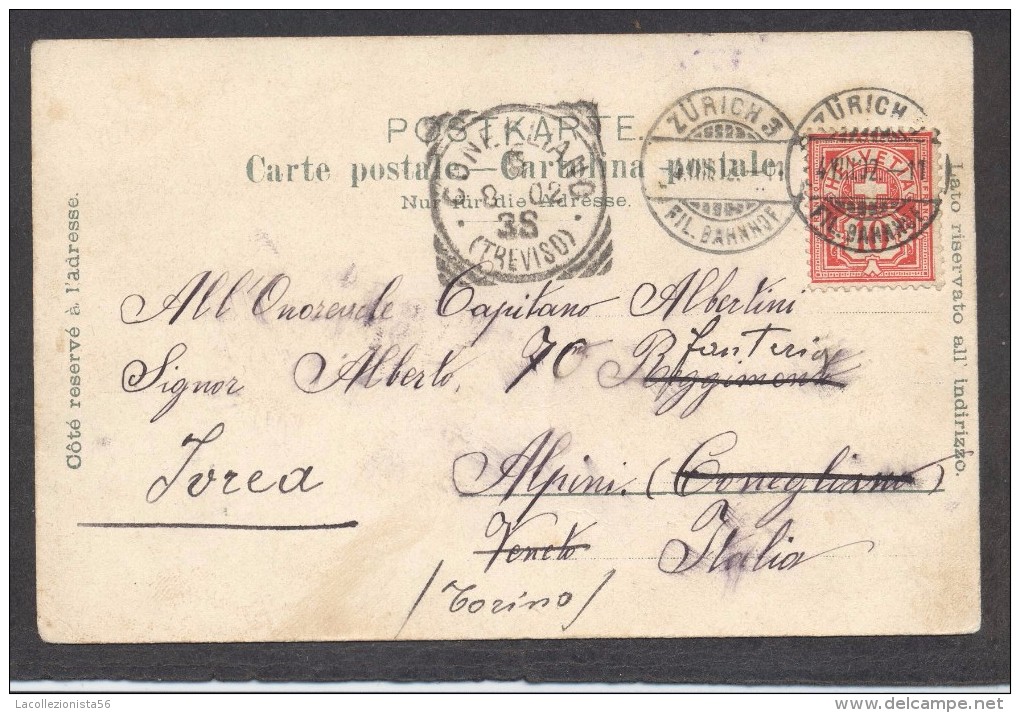 POSTKARTE.
Carte postale — Cartolina postale.
Nur für die Adresse.
CONEGLIANO
5
8 02
3S
(TREVISO)
ZÜRICH 3
FIL. BAHNHOF
ZÜRICH
11
FIL. BAHNHOF
HELVETIA
10
Côté reservé à l'adresse.
Lato riservato all' indirizzo.
All Onorevole Capitano Albertini
Signor Alberto, 70º Reggimento fanteria
Ivrea Alpini. (Conegliano)
Veneto Italia
(Torino)
Lacollezionista56
delcampe.net